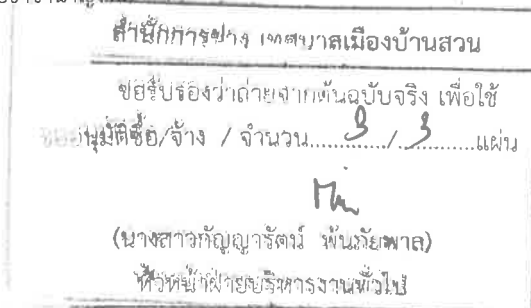 สำนักการช่าง เทศบาลเมืองบ้านสวน
ขอรับรองว่าถ่ายจากต้นฉบับจริง เพื่อใช้
ขออนุมัติซื้อ/จ้าง / จำนวน.........3.../..3.........แผ่น
(นางสาวกัญญารัตน์ พ้นภัยพาล)
หัวหน้าฝ่ายบริหารงานทั่วไป